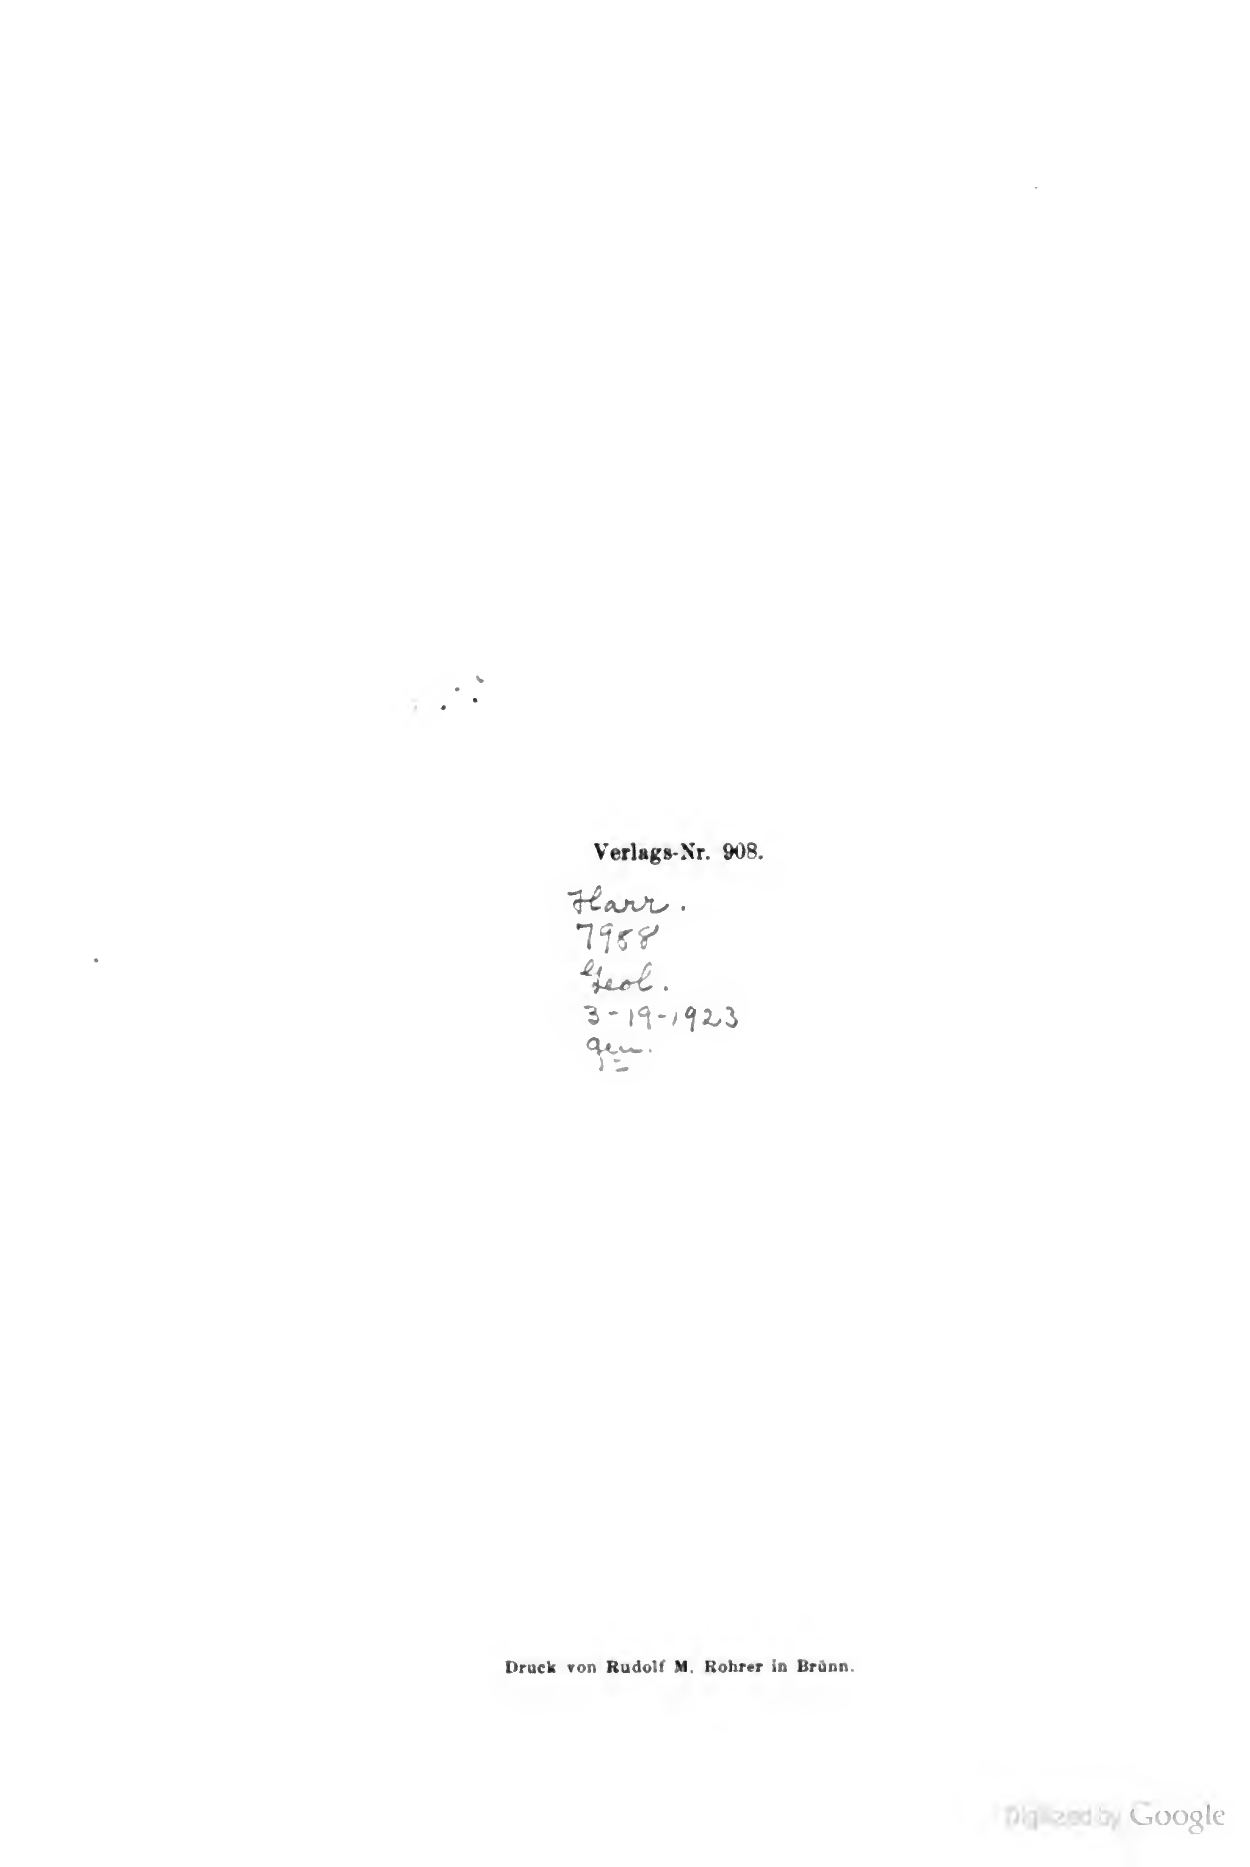 Verlags-Nr. 908.
Harr.
7958
Geol.
3-19-1923
gen.
Druck von Rudolf M. Rohrer in Brünn.
Digitized by Google